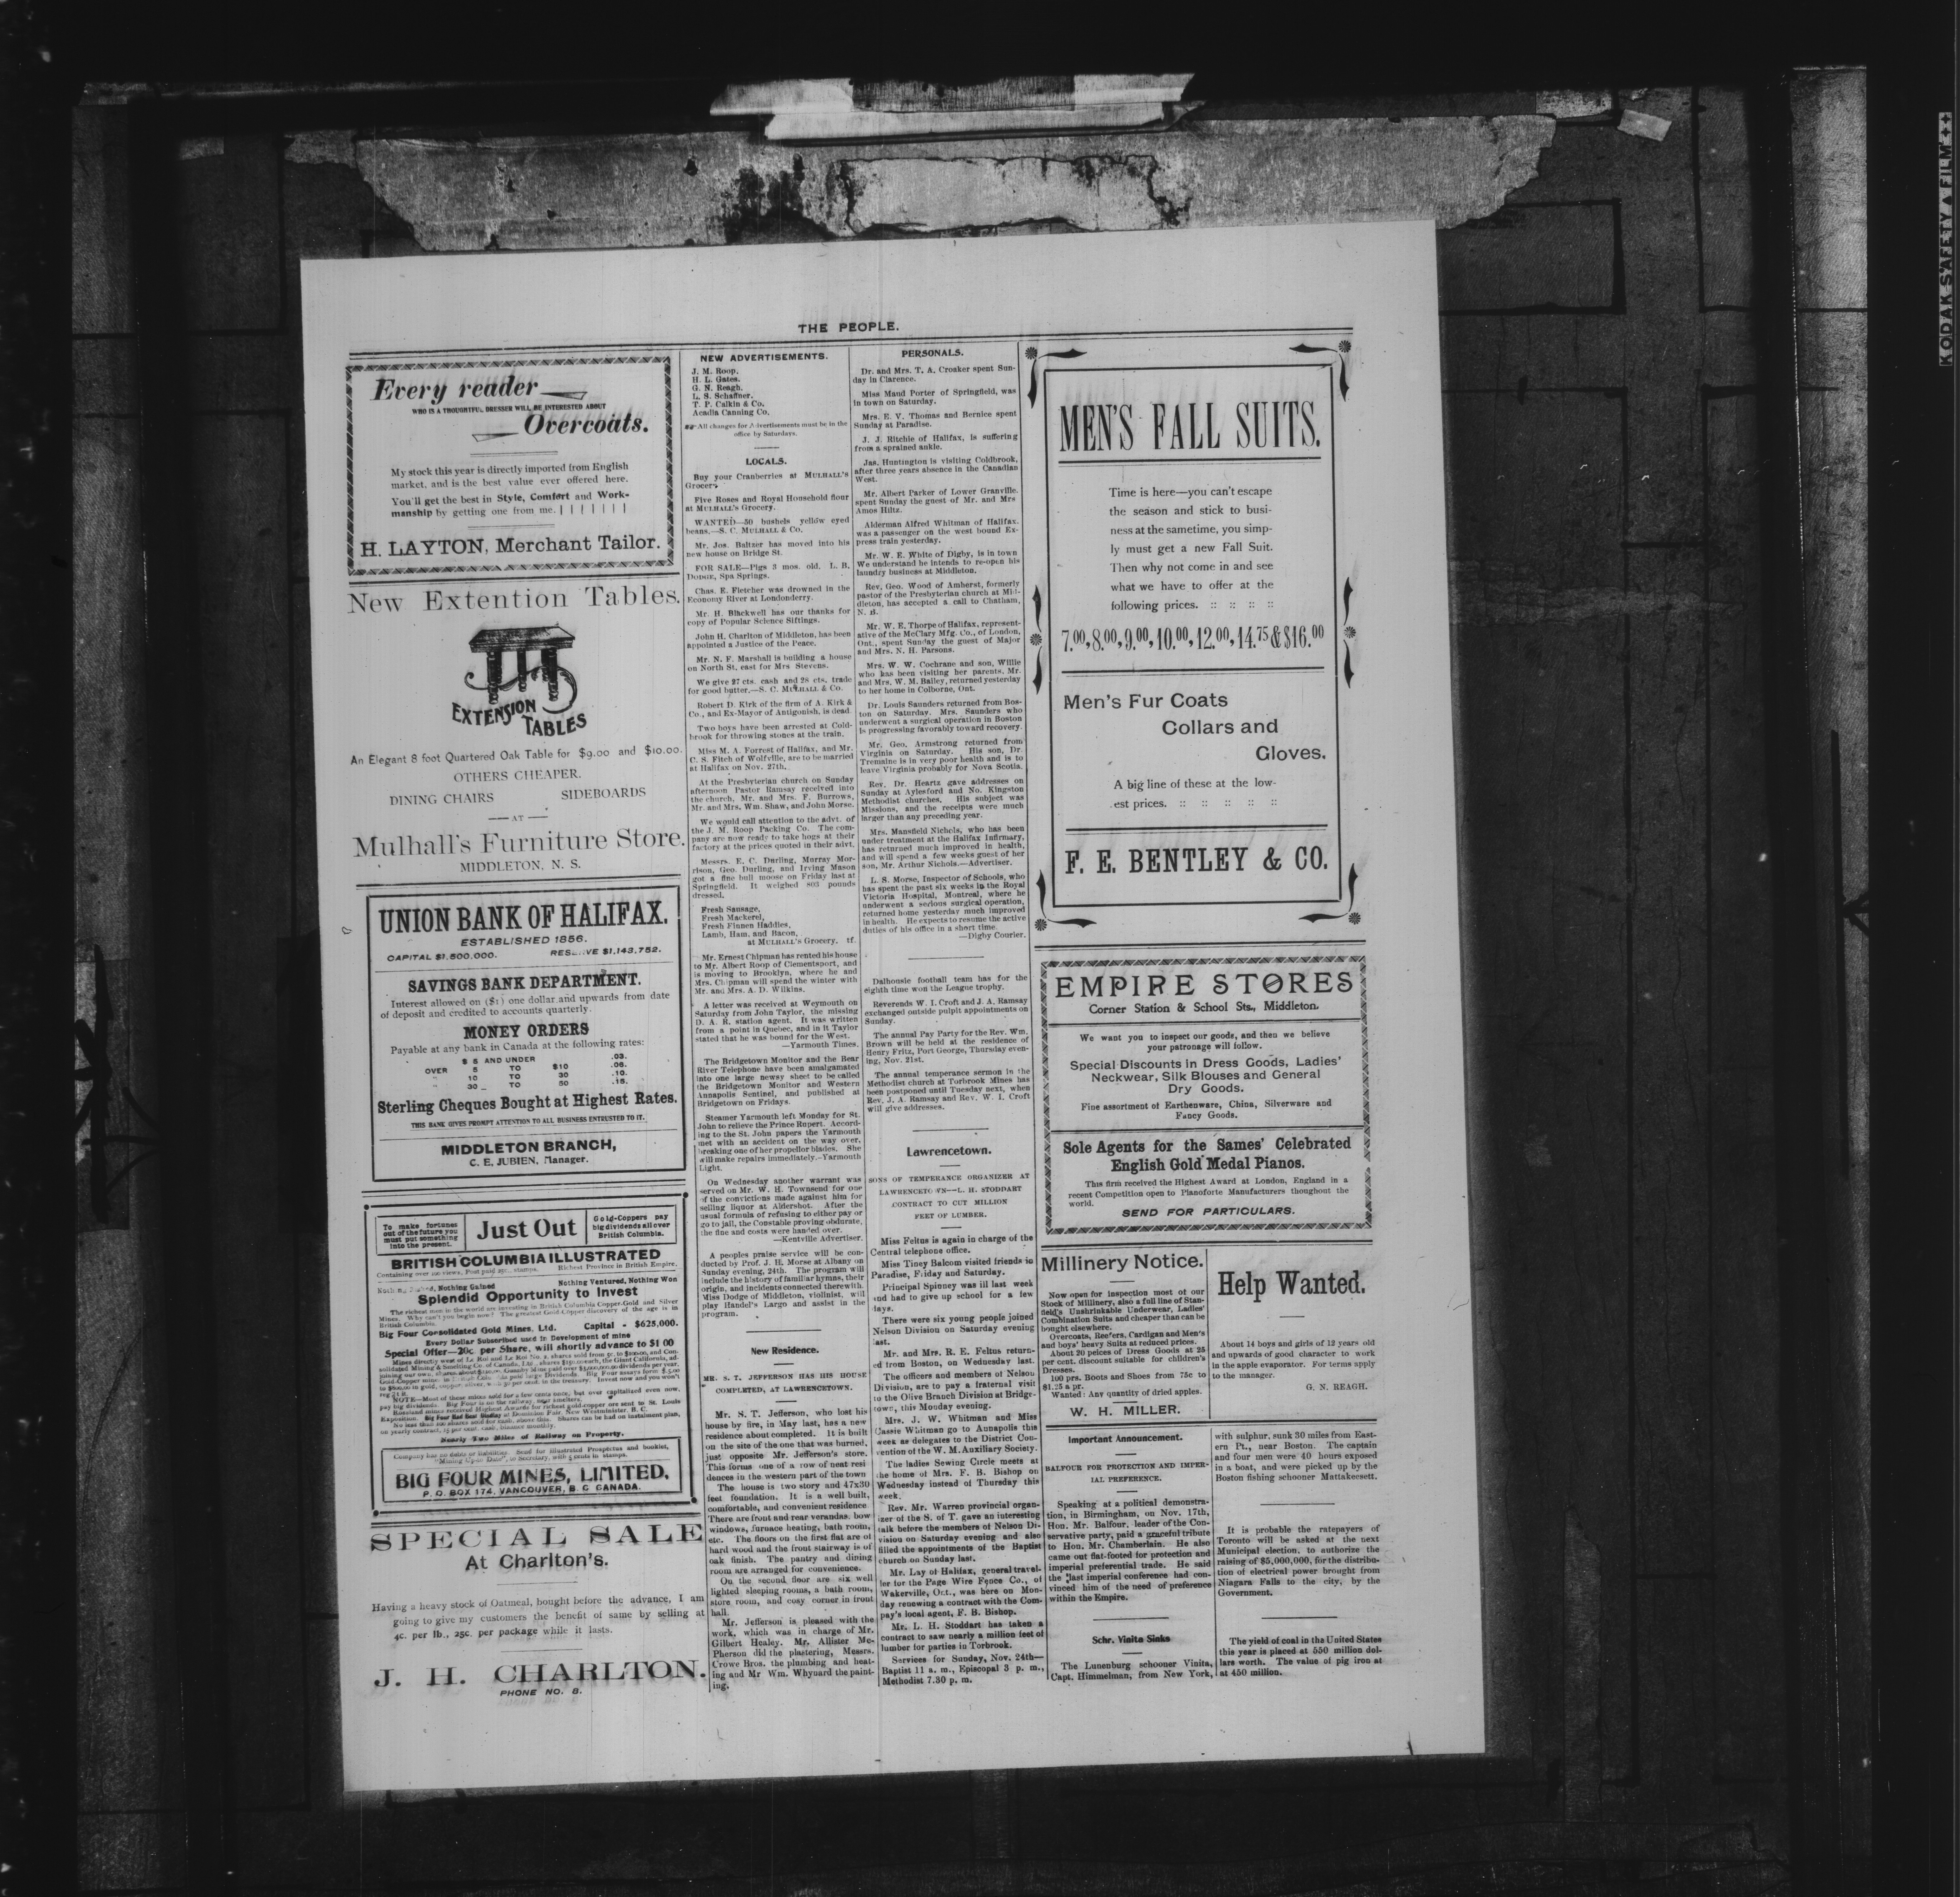 THE PEOPLE.
Every reader
WHO IS A THOUGHTFUL DRESSER WILL BE INTERESTED ABOUT
Overcoats.
My stock this year is directly imported from English
market, and is the best value ever offered here.
You'll get the best in Style, Comfort and Work-
manship by getting one from me.
H. LAYTON, Merchant Tailor.
New Extention Tables.
EXTENSION
TABLES
An Elegant 8 foot Quartered Oak Table for $9.00 and $10.00.
OTHERS CHEAPER.
DINING CHAIRS SIDEBOARDS
— AT —
Mulhall's Furniture Store.
MIDDLETON, N. S.
UNION BANK OF HALIFAX.
ESTABLISHED 1856.
CAPITAL $1,500,000. RESERVE $1,143,752.
SAVINGS BANK DEPARTMENT.
Interest allowed on ($1) one dollar and upwards from date
of deposit and credited to accounts quarterly.
MONEY ORDERS
Payable at any bank in Canada at the following rates:
$ 5 AND UNDER .03.
OVER 5 TO $10 .06.
" 10 TO 30 .10.
" 30 TO 50 .15.
Sterling Cheques Bought at Highest Rates.
THIS BANK GIVES PROMPT ATTENTION TO ALL BUSINESS ENTRUSTED TO IT.
MIDDLETON BRANCH,
C. E. JUBIEN, Manager.
To make fortunes
out of the future you
must put something
into the present.
Just Out
Gold-Coppers pay
big dividends all over
British Columbia.
BRITISH COLUMBIA ILLUSTRATED
Containing over 100 views, Post paid 25c., stamps. Richest Province in British Empire.
Nothing Gained Nothing Ventured, Nothing Won
Splendid Opportunity to Invest
The richest men in the world are investing in British Columbia Copper-Gold and Silver
Mines. Why can't you begin now? The greatest Gold-Copper discovery of the age is in
British Columbia.
Big Four Consolidated Gold Mines, Ltd. Capital - $625,000.
Every Dollar Subscribed used in Development of mine
Special Offer—20c per Share, will shortly advance to $1 00
Mines directly west of Le Roi and Le Roi No. 2, shares sold from 5c. to $100.00, and Con-
solidated Mining & Smelting Co. of Canada, Ltd., shares $150.00 each, the Giant California, ad-
NOTE—Most of these mines sold for a few cents once, but over capitalized even now,
pay big dividends. Big Four is on the railway, near smelters.
Rossland mines received Highest Awards for richest gold-copper ore sent to St. Louis
Exposition. Big Four Had Best Display at Dominion Fair, New Westminister, B. C.
No less than 100 shares sold for cash, above this. Shares can be had on instalment plan,
on yearly contract, 15 per cent. cash, balance monthly.
Nearly Two Miles of Railway on Property.
Company has no debts or liabilities. Send for Illustrated Prospectus and booklet,
"Mining Up-to Date", to Secretary, with 5 cents in stamps.
BIG FOUR MINES, LIMITED,
P. O. BOX 174, VANCOUVER, B. C. CANADA.
SPECIAL SALE
At Charlton's.
Having a heavy stock of Oatmeal, bought before the advance, I am
going to give my customers the benefit of same by selling at
4c. per lb., 25c. per package while it lasts.
J. H. CHARLTON.
PHONE NO. 8.
NEW ADVERTISEMENTS.
J. M. Roop.
H. L. Gates.
G. N. Reagh.
L. S. Schaffner.
T. P. Calkin & Co.
Acadia Canning Co.
All changes for Advertisements must be in the
office by Saturdays.
LOCALS.
Buy your Cranberries at MULHALL'S
Grocery
Five Roses and Royal Household flour
at MULHALL'S Grocery.
WANTED—50 bushels yellow eyed
beans.—S. C. MULHALL & Co.
Mr. Jos. Baltzer has moved into his
new house on Bridge St.
FOR SALE—Pigs 3 mos. old. L. B.
DODGE, Spa Springs.
Chas. E. Fletcher was drowned in the
Economy River at Londonderry.
Mr. H. Blackwell has our thanks for
copy of Popular Science Siftings.
John H. Charlton of Middleton, has been
appointed a Justice of the Peace.
Mr. N. F. Marshall is building a house
on North St. east for Mrs Stevens.
We give 27 cts. cash and 28 cts. trade
for good butter.—S. C. MULHALL & Co.
Robert D. Kirk of the firm of A. Kirk &
Co., and Ex-Mayor of Antigonish, is dead.
Two boys have been arrested at Cold-
brook for throwing stones at the train.
Miss M. A. Forrest of Halifax, and Mr.
C. S. Fitch of Wolfville, are to be married
at Halifax on Nov. 27th.
At the Presbyterian church on Sunday
afternoon Pastor Ramsay received into
the church, Mr. and Mrs. F. Burrows,
Mr. and Mrs. Wm. Shaw, and John Morse.
We would call attention to the advt. of
the J. M. Roop Packing Co. The com-
pany are now ready to take hogs at their
factory at the prices quoted in their advt.
Messrs. E. C. Durling, Murray Mor-
rison, Geo. Durling, and Irving Mason
got a fine bull moose on Friday last at
Springfield. It weighed 803 pounds
dressed.
Fresh Sausage,
Fresh Mackerel,
Fresh Finnen Haddies,
Lamb, Ham, and Bacon,
at MULHALL'S Grocery. tf.
Mr. Ernest Chipman has rented his house
to Mr. Albert Roop of Clementsport, and
is moving to Brooklyn, where he and
Mrs. Chipman will spend the winter with
Mr. and Mrs. A. D. Wilkins.
A letter was received at Weymouth on
Saturday from John Taylor, the missing
D. A. R. station agent. It was written
from a point in Quebec, and in it Taylor
stated that he was bound for the West.
—Yarmouth Times.
The Bridgetown Monitor and the Bear
River Telephone have been amalgamated
into one large newsy sheet to be called
the Bridgetown Monitor and Western
Annapolis Sentinel, and published at
Bridgetown on Fridays.
Steamer Yarmouth left Monday for St.
John to relieve the Prince Rupert. Accord-
ing to the St. John papers the Yarmouth
met with an accident on the way over,
breaking one of her propellor blades. She
will make repairs immediately.—Yarmouth
Light.
On Wednesday another warrant was
served on Mr. W. H. Townsend for one
of the convictions made against him for
selling liquor at Aldershot. After the
usual formula of refusing to either pay or
go to jail, the Constable proving obdurate,
the fine and costs were handed over.
—Kentville Advertiser.
A peoples praise service will be con-
ducted by Prof. J. H. Morse at Albany on
Sunday evening, 24th. The program will
include the history of familiar hymns, their
origin, and incidents connected therewith.
Miss Dodge of Middleton, violinist, will
play Handel's Largo and assist in the
program.
New Residence.
MR. S. T. JEFFERSON HAS HIS HOUSE
COMPLETED, AT LAWRENCETOWN.
Mr. S. T. Jefferson, who lost his
house by fire, in May last, has a new
residence about completed. It is built
on the site of the one that was burned,
just opposite Mr. Jefferson's store.
This forms one of a row of neat resi
dences in the western part of the town
The house is two story and 47x30
feet foundation. It is a well built,
comfortable, and convenient residence
There are front and rear verandas, bow
windows, furnace heating, bath room,
etc. The floors on the first flat are of
hard wood and the front stairway is of
oak finish. The pantry and dining
room are arranged for convenience.
On the second floor are six well
lighted sleeping rooms, a bath room,
store room, and cosy corner in front
hall.
Mr. Jefferson is pleased with the
work, which was in charge of Mr.
Gilbert Healey. Mr. Allister Mc-
Pherson did the plastering, Messrs.
Crowe Bros. the plumbing and heat-
ing and Mr Wm. Whynard the paint-
ing.
PERSONALS.
Dr. and Mrs. T. A. Croaker spent Sun-
day in Clarence.
Miss Maud Porter of Springfield, was
in town on Saturday.
Mrs. E. V. Thomas and Bernice spent
Sunday at Paradise.
J. J. Ritchie of Halifax, is suffering
from a sprained ankle.
Jas. Huntington is visiting Coldbrook,
after three years absence in the Canadian
West.
Mr. Albert Parker of Lower Granville,
spent Sunday the guest of Mr. and Mrs
Amos Hiltz.
Alderman Alfred Whitman of Halifax,
was a passenger on the west bound Ex-
press train yesterday.
Mr. W. E. White of Digby, is in town
We understand he intends to re-open his
laundry business at Middleton.
Rev. Geo. Wood of Amherst, formerly
pastor of the Presbyterian church at Mid-
dleton, has accepted a call to Chatham,
N. B.
Mr. W. E. Thorpe of Halifax, represent-
ative of the McClary Mfg. Co., of London,
Ont., spent Sunday the guest of Major
and Mrs. N. H. Parsons.
Mrs. W. W. Cochrane and son, Willie
who has been visiting her parents, Mr.
and Mrs. W. M. Bailey, returned yesterday
to her home in Colborne, Ont.
Dr. Louis Saunders returned from Bos-
ton on Saturday. Mrs. Saunders who
underwent a surgical operation in Boston
is progressing favorably toward recovery.
Mr. Geo. Armstrong returned from
Virginia on Saturday. His son, Dr.
Tremaine is in very poor health and is to
leave Virginia probably for Nova Scotia.
Rev. Dr. Heartz gave addresses on
Sunday at Aylesford and No. Kingston
Methodist churches. His subject was
Missions, and the receipts were much
larger than any preceding year.
Mrs. Mansfield Nichols, who has been
under treatment at the Halifax Infirmary,
has returned much improved in health,
and will spend a few weeks guest of her
son, Mr. Arthur Nichols.—Advertiser.
L. S. Morse, Inspector of Schools, who
has spent the past six weeks in the Royal
Victoria Hospital, Montreal, where he
underwent a serious surgical operation,
returned home yesterday much improved
in health. He expects to resume the active
duties of his office in a short time.
—Digby Courier.
Dalhousie football team has for the
eighth time won the League trophy.
Reverends W. I. Croft and J. A. Ramsay
exchanged outside pulpit appointments on
Sunday.
The annual Pay Party for the Rev. Wm.
Brown will be held at the residence of
Henry Fritz, Port George, Thursday even-
ing, Nov. 21st.
The annual temperance sermon in the
Methodist church at Torbrook Mines has
been postponed until Tuesday next, when
Rev. J. A. Ramsay and Rev. W. I. Croft
will give addresses.
Lawrencetown.
SONS OF TEMPERANCE ORGANIZER AT
LAWRENCETOWN—L. H. STODDART
CONTRACT TO CUT MILLION
FEET OF LUMBER.
Miss Feltus is again in charge of the
Central telephone office.
Miss Tiney Balcom visited friends in
Paradise, Friday and Saturday.
Principal Spinney was ill last week
and had to give up school for a few
days.
There were six young people joined
Nelson Division on Saturday evening
last.
Mr. and Mrs. R. E. Feltus return-
ed from Boston, on Wednesday last.
The officers and members of Nelson
Division, are to pay a fraternal visit
to the Olive Branch Division at Bridge-
town, this Monday evening.
Mrs. J. W. Whitman and Miss
Cassie Whitman go to Annapolis this
week as delegates to the District Con-
vention of the W. M. Auxiliary Society.
The ladies Sewing Circle meets at
the home of Mrs. F. B. Bishop on
Wednesday instead of Thursday this
week.
Rev. Mr. Warren provincial organ-
izer of the S. of T. gave an interesting
talk before the members of Nelson Di-
vision on Saturday evening and also
filled the appointments of the Baptist
church on Sunday last.
Mr. Lay of Halifax, general travel-
ler for the Page Wire Fence Co., of
Wakerville, Oct., was here on Mon-
day renewing a contract with the Com-
pay's local agent, F. B. Bishop.
Mr. L. H. Stoddart has taken a
contract to saw nearly a million feet of
lumber for parties in Torbrook.
Services for Sunday, Nov. 24th—
Baptist 11 a. m., Episcopal 3 p. m.,
Methodist 7.30 p. m.
MEN'S FALL SUITS.
Time is here—you can't escape
the season and stick to busi-
ness at the sametime, you simp-
ly must get a new Fall Suit.
Then why not come in and see
what we have to offer at the
following prices. :: :: :: ::
7.00, 8.00, 9.00, 10.00, 12.00, 14.75 & $16.00
Men's Fur Coats
Collars and
Gloves.
A big line of these at the low-
est prices. :: :: :: :: ::
F. E. BENTLEY & CO.
EMPIRE STORES
Corner Station & School Sts., Middleton.
We want you to inspect our goods, and then we believe
your patronage will follow.
Special Discounts in Dress Goods, Ladies'
Neckwear, Silk Blouses and General
Dry Goods.
Fine assortment of Earthenware, China, Silverware and
Fancy Goods.
Sole Agents for the Sames' Celebrated
English Gold Medal Pianos.
This firm received the Highest Award at London, England in a
recent Competition open to Pianoforte Manufacturers thoughout the
world.
SEND FOR PARTICULARS.
Millinery Notice.
Now open for inspection most of our
Stock of Millinery, also a full line of Stan-
field's Unshrinkable Underwear, Ladies'
Combination Suits and cheaper than can be
bought elsewhere.
Overcoats, Reefers, Cardigan and Men's
and boys' heavy Suits at reduced prices.
About 20 peices of Dress Goods at 25
per cent. discount suitable for children's
Dresses.
100 prs. Boots and Shoes from 75c to
$1.25 a pr.
Wanted: Any quantity of dried apples.
W. H. MILLER.
Help Wanted.
About 14 boys and girls of 12 years old
and upwards of good character to work
in the apple evaporator. For terms apply
to the manager.
G. N. REAGH.
Important Announcement.
BALFOUR FOR PROTECTION AND IMPER-
IAL PREFERENCE.
Speaking at a political demonstra-
tion, in Birmingham, on Nov. 17th,
Hon. Mr. Balfour, leader of the Con-
servative party, paid a graceful tribute
to Hon. Mr. Chamberlain. He also
came out flat-footed for protection and
imperial preferential trade. He said
the last imperial conference had con-
vinced him of the need of preference
within the Empire.
Schr. Vinita Sinks
The Lunenburg schooner Vinita,
Capt. Himmelman, from New York,
with sulphur, sunk 30 miles from East-
ern Pt., near Boston. The captain
and four men were 40 hours exposed
in a boat, and were picked up by the
Boston fishing schooner Mattakeesett.
It is probable the ratepayers of
Toronto will be asked at the next
Municipal election, to authorize the
raising of $5,000,000, for the distribu-
tion of electrical power brought from
Niagara Falls to the city, by the
Government.
The yield of coal in the United States
this year is placed at 550 million dol-
lars worth. The value of pig iron at
at 450 million.
KODAK SAFETY A FILM ++